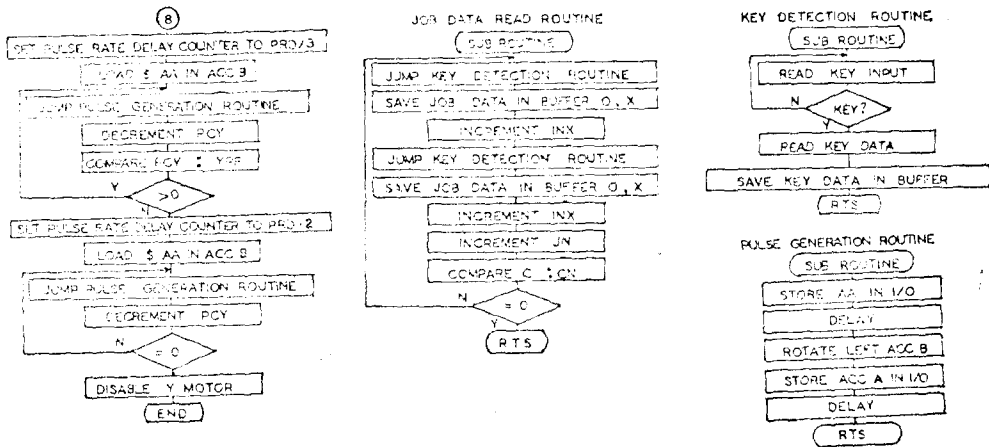 8
SET PULSE RATE DELAY COUNTER TO PRD/3
LOAD $ AA IN ACC B
JUMP PULSE GENERATION ROUTINE
DECREMENT PCY
COMPARE PCY : YRF
Y
>0
N
SET PULSE RATE DELAY COUNTER TO PRD/2
LOAD $ AA IN ACC B
JUMP PULSE GENERATION ROUTINE
DECREMENT PCY
N
= 0
DISABLE Y MOTOR
END
JOB DATA READ ROUTINE
SUB ROUTINE
JUMP KEY DETECTION ROUTINE
SAVE JOB DATA IN BUFFER O, X
INCREMENT INX
JUMP KEY DETECTION ROUTINE
SAVE JOB DATA IN BUFFER O, X
INCREMENT INX
INCREMENT JN
COMPARE C : CN
N
= 0
Y
RTS
KEY DETECTION ROUTINE
SUB ROUTINE
READ KEY INPUT
N
KEY?
Y
READ KEY DATA
SAVE KEY DATA IN BUFFER
RTS
PULSE GENERATION ROUTINE
SUB ROUTINE
STORE AA IN I/O
DELAY
ROTATE LEFT ACC B
STORE ACC A IN I/O
DELAY
RTS